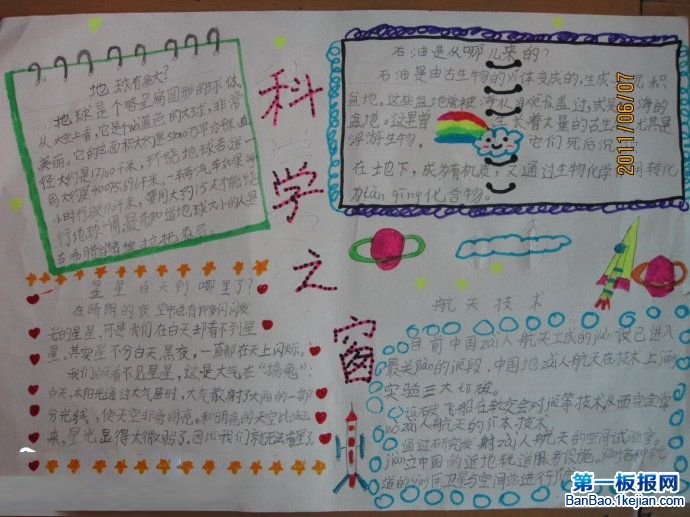 科学之窗
地球有多大?
地球是个略呈扁圆形的球体,
从太空上看,它是个蓝色的大球,非常
美丽。它的总面积大约是51000万平方千米,直
径大约是12700千米,环绕地球赤道一
周大约是40075.696千米。一辆汽车如果每
小时行驶110千米,要用大约15天才能
行地球一周。最先知道地球大小的人是
古希腊
石油是从哪儿来的?
石油是由古生物的 体变成的,生成 积
盆地。这些盆地曾被海水 盖过,或是 海的
盆地。这里曾 生长着大量的古生 其是
浮游生物, 它们死后沉
在地下,成为有机质,又通过生物化学 用转化
为tàn qing化合物。
2011/06/07
星星白天到哪里了?
在晴朗的夜空中也有许多闪闪发
光的星星,可是我们在白天却看不到星
星。其实星不分白天、黑夜,一直都在天上闪烁。
我们白天看不见星星,这是大气在“搞鬼”:
白天,太阳光通过大气层时,大气散射了太阳的一部
分光线,使天空非常明亮。和明亮的天空比起
来,星光显得太微弱了,因此我们就无法看星了。
航天技术
目前中国zài人航天工成的jiàn设已进入
最关jiàn的阶段,中国地zài人航天在技术上jiāng
实验三大 破。
破飞船在 空交会对 等技术,从而完全掌
zài人航天的 本技术
通过研究发射zài人航天的空间试验室。
jiàn立中国的 地轨道服务设施。jiāng各种轨
道的 间卫星与空间站进行
第一板报网
BanBao.1kejian.com